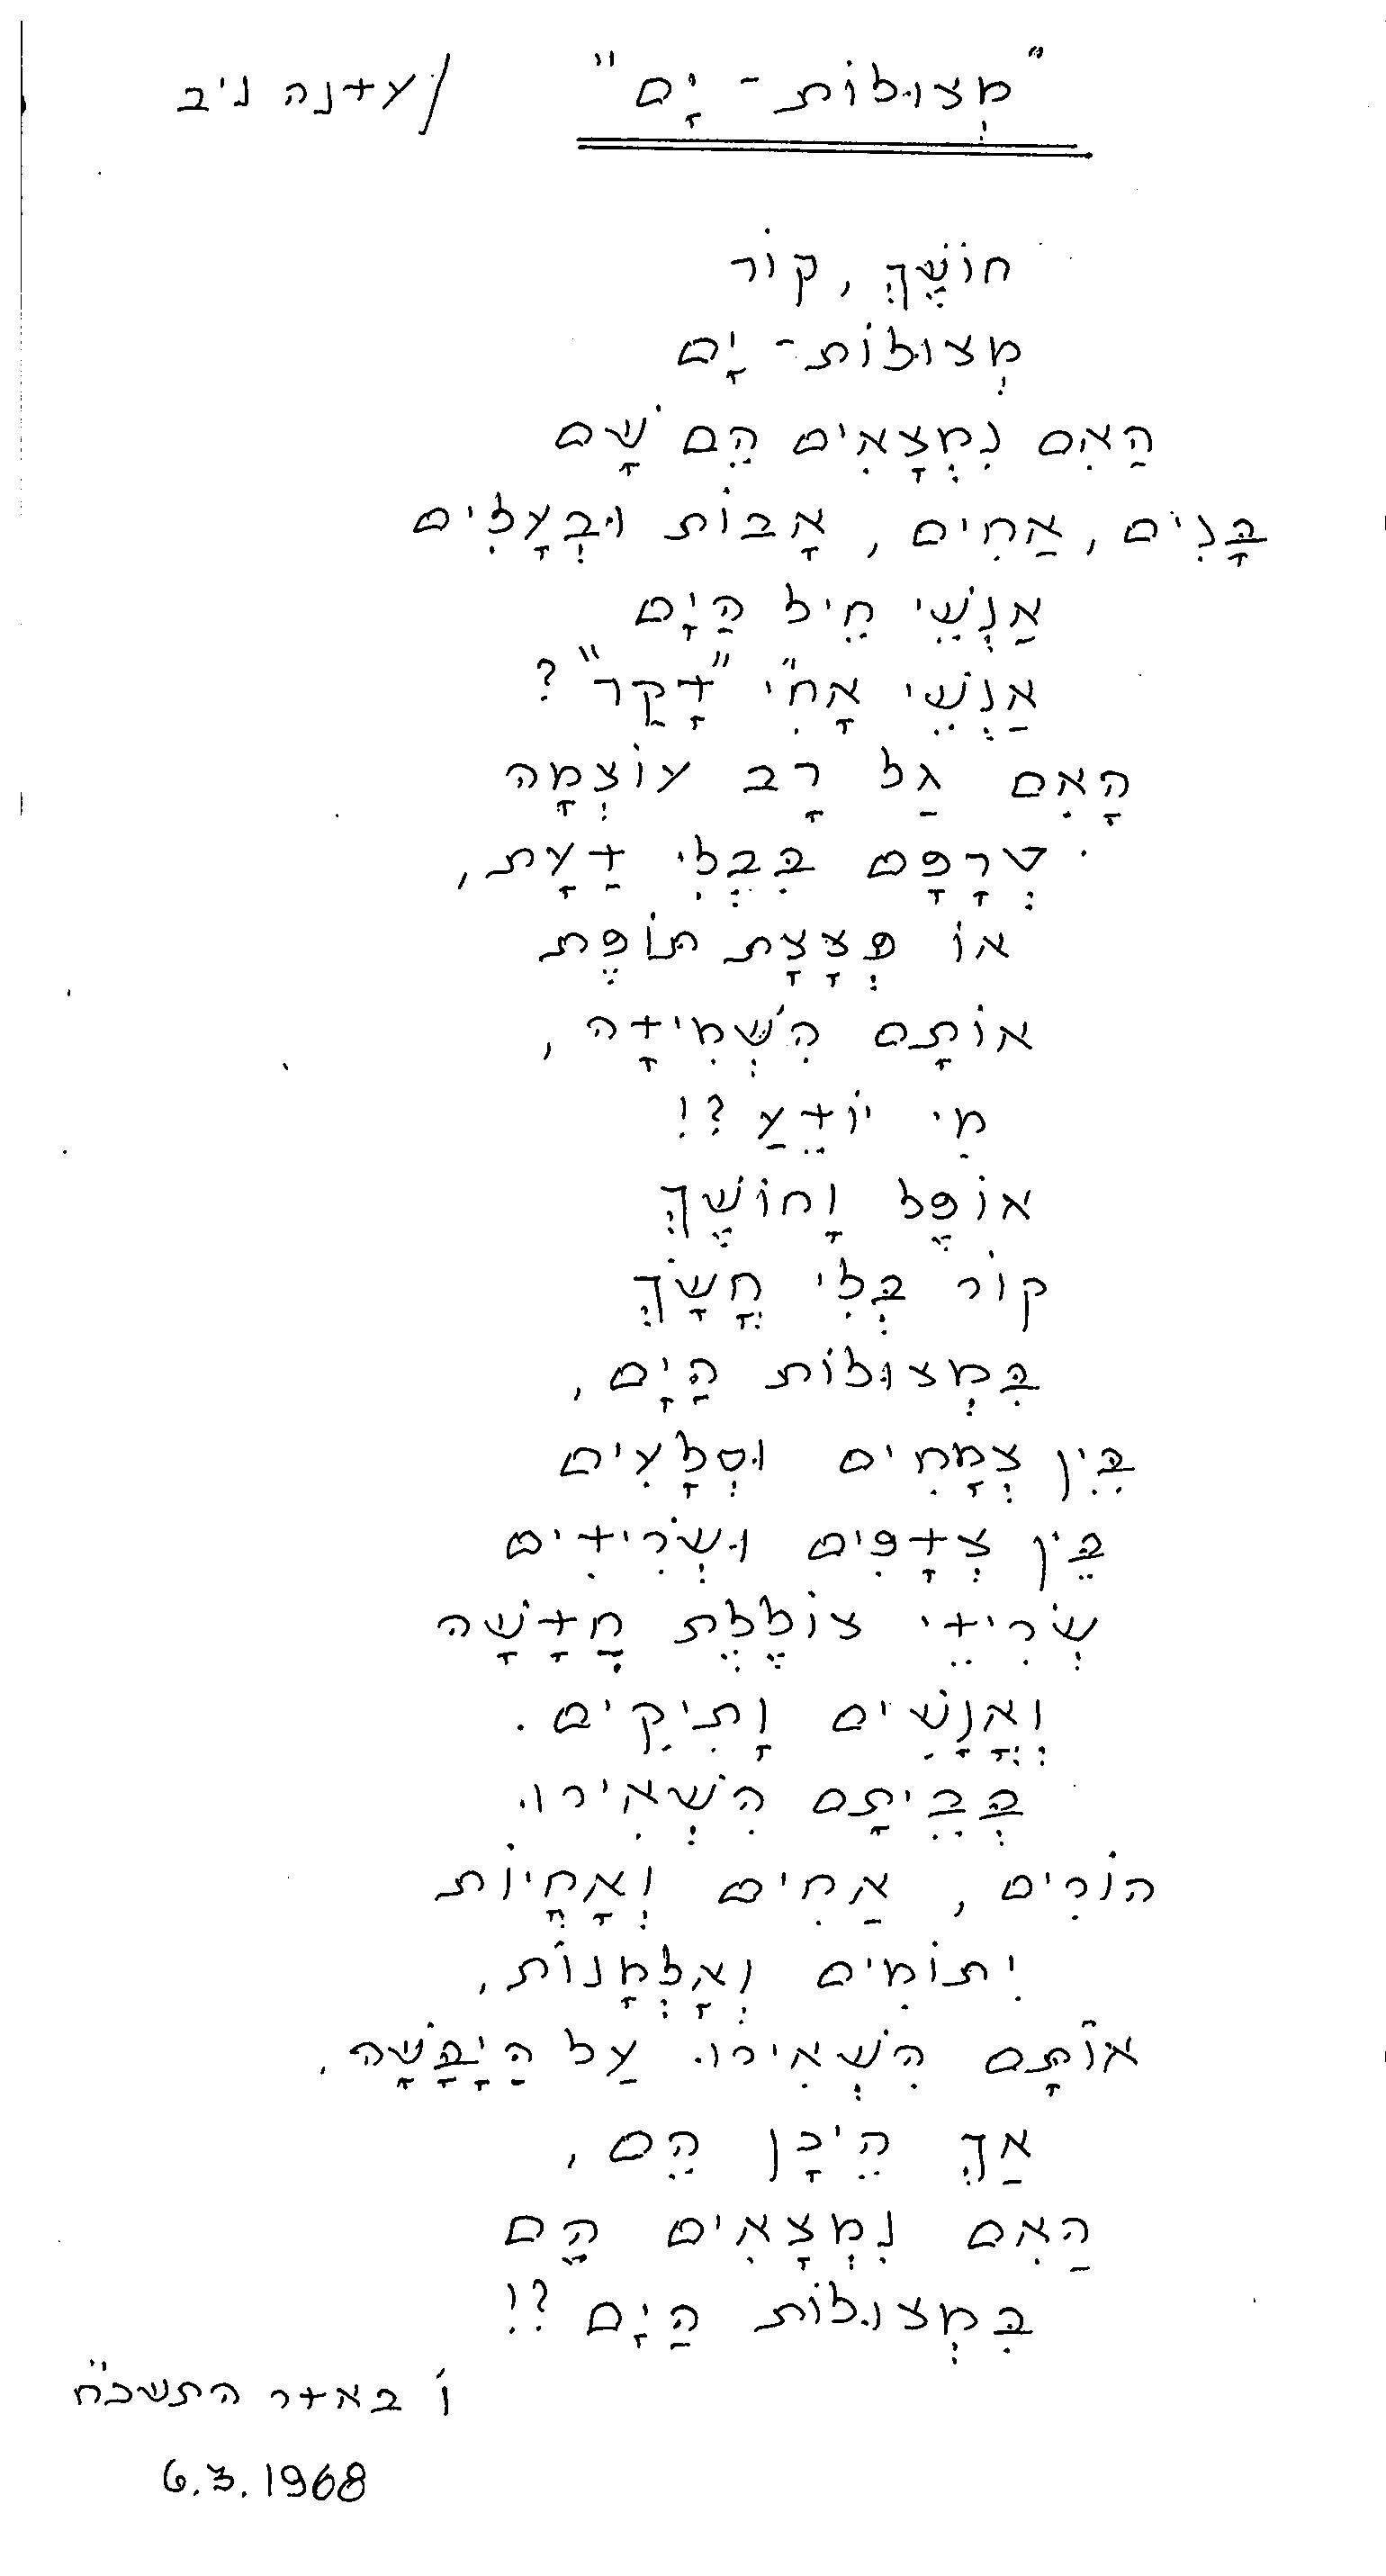 "מְצוּלוֹת - יָם" / עדנה ניב
חוֹשֶׁךְ, קוֹר
מְצוּלוֹת - יָם
הַאִם נִמְצָאִים הֵם שָׁם
בָּנִים, אַחִים, אָבוֹת וּבְעָלִים
אַנְשֵׁי חֵיל הַיָם
אַנְשֵׁי אָחִ"י "דָקַר"?
הָאִם גַל רָב עוֹצְמָה
טְרָפָם בִּבְלִי דַעָת,
אוֹ פְּצָצָת תּוֹפֶת
אוֹתָם הִשְׁמִידָה,
מִי יוֹדֵעַ?!
אוֹפֶל וָחוֹשֶׁךְ
קוֹר בְּלִי חֲשָׂךְ
בִּמְצוּלוֹת הַיָם,
בֵּין צְמָחִים וּסְלָעִים
בֵּין צְדָפִים וּשְׂרִידִים
שְׂרִידֵי צוֹלֶלֶת חֲדָשָׁה
וְאֲנָשִׁים וָתִיקִים.
בְּבֵיתָם הִשְׁאִירוּ
הוֹרִים, אַחִים וְאָחֲיוֹת
יִתוֹמִים וְאָלְמָנוֹת,
אוֹתָם הִשְׁאִירוּ עַל הַיָבָּשָׁה,
אַךְ הֵיכָן הֵם,
הַאִם נִמְצָאִים הֶם
בִּמְצוּלוֹת הַיָם?!
ו' באדר התשכ"ח
6.3.1968